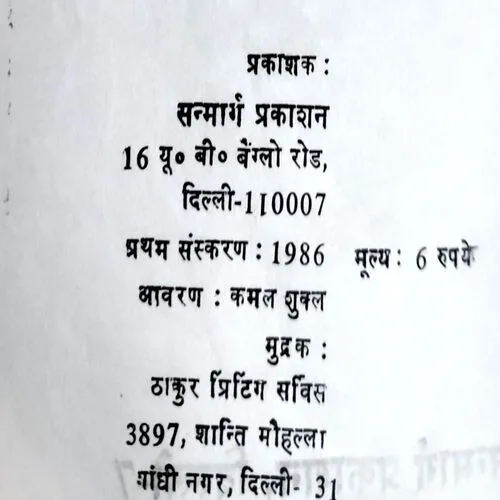 प्रकाशक :
सन्मार्ग प्रकाशन
16 यू० बी० बैंग्लो रोड,
दिल्ली-110007
प्रथम संस्करण : 1986 मूल्य : 6 रुपये
आवरण : कमल शुक्ल
मुद्रक :
ठाकुर प्रिटिंग सर्विस
3897, शान्ति मोहल्ला
गांधी नगर, दिल्ली- 31